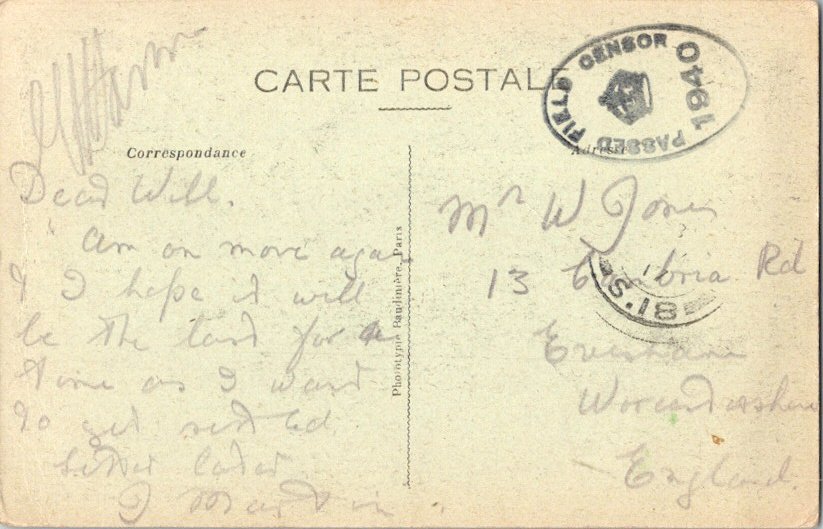 CARTE POSTALE
PASSED FIELD CENSOR
1940
Correspondance
Adresse
Dear Will.
Am on move again
& I hope it will
be the last for a
time as I want
to get settled
better later
J Martin
Phototypie Baudinière, Paris
Mr W Jones
13 Cambria Rd
Evesham
Worcestershire
England.